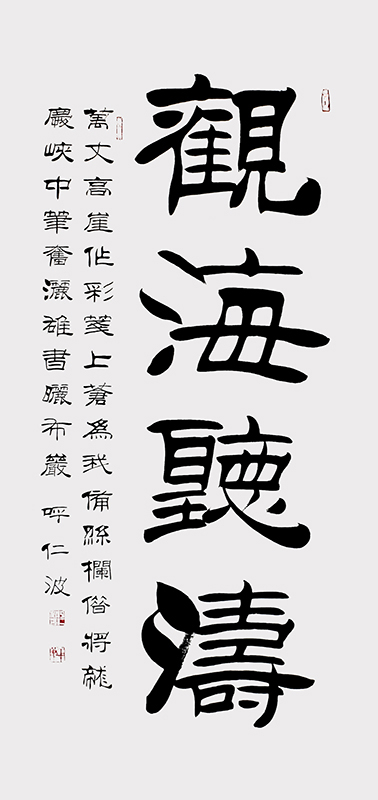 觀海聽濤
萬丈高崖作彩箋上蒼為我備絲欄借將龍
巖峽中筆奮灑雄書曬布巖 呼仁波